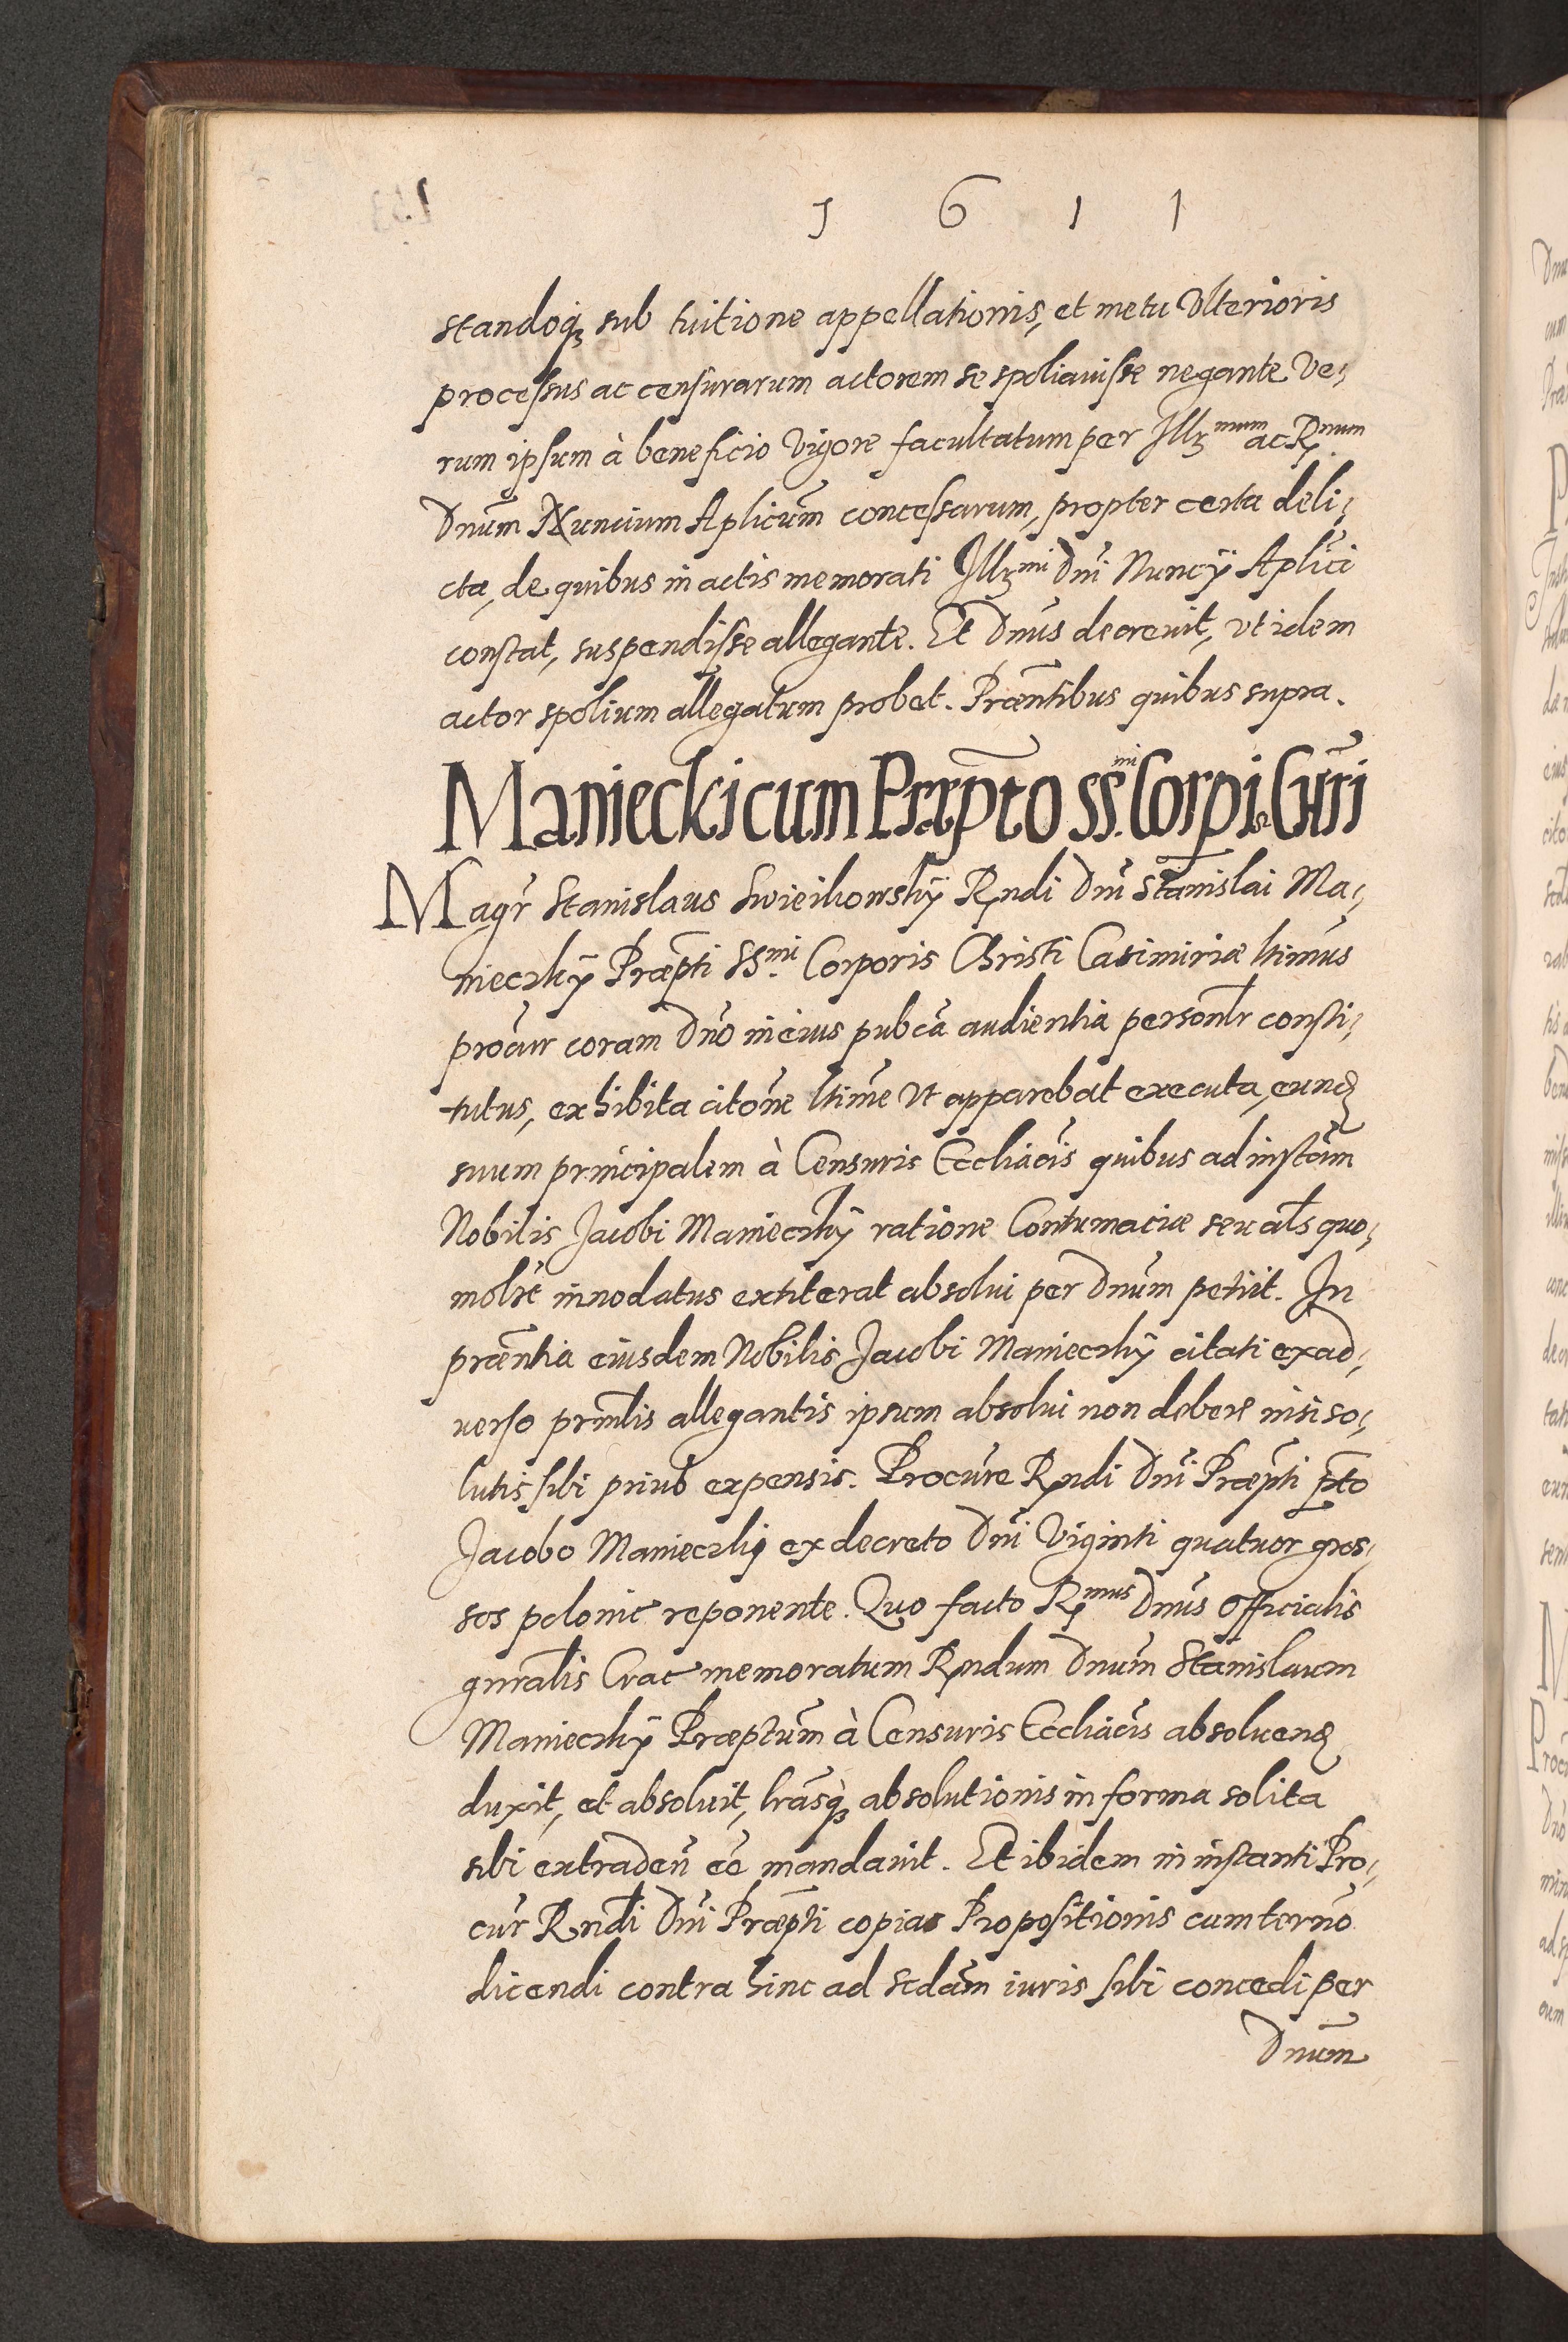 1 6 1 1
standoq́ꝫ sub tuitione appellationis, et metu Vlterioris
processus ac censurarum actorem se spoliauisse negante Ve,
rum ipsum à beneficio Vigore facultatum per Illꝫmum ac Rmum
Dnum Nuncium Aplicum concessarum, propter certa deli,
cta, de quibus in actis memorati Illꝫmi Dni Nuncÿ Aplici
constat, suspendisse allegante. Et Dnus decreuit, vt idem
actor spolium allegatum probet. Præntibus quibus supra.
Manieckicum Præpto SS.mi Corpis Chri
Magr Stanislaus Rndi Dni Stanislai Ma,
nieczkÿ Præpti SSmi Corporis Christi Casimiriæ ltimus
procur coram Dno in eius pubca audientia personlr consti,
tutus, exhibita citone ltime vt apparebat executa, eund
suum principalem à Censuris Eccliacis quibus ad instam
Nobilis Jacobi Manieczkÿ ratione Contumaciæ seu als quo,
molt innodatus extiterat absolui per Dnum petiit. In
præntia eiusdem Nobilis Jacobi Manieczkÿ citati ex ad,
uerso prinlis allegantis ipsum absolui non debere nisi so,
lutis sibi prius expensis. Procure Rndi Dni Præpti pto
Jacobo Manieczkij ex decreto Dni Viginti quatuor gros,
sos polonic reponente. Quo facto Rmus Dnus Officialis
gnralis Crac memoratum Rndum Dnum Stanislaum
Manieczkÿ Præptum à Censuris Eccliacis absoluend
duxit, et absoluit, lrasq́ꝫ absolutionis in forma solita
sibi extraden ee mandauit. Et ibidem in instanti Pro,
cur Rndi Dni Præpti copiae Propositionis cum termo
dicendi contra hinc ad scdam iuris sibi concedi per
Dnum